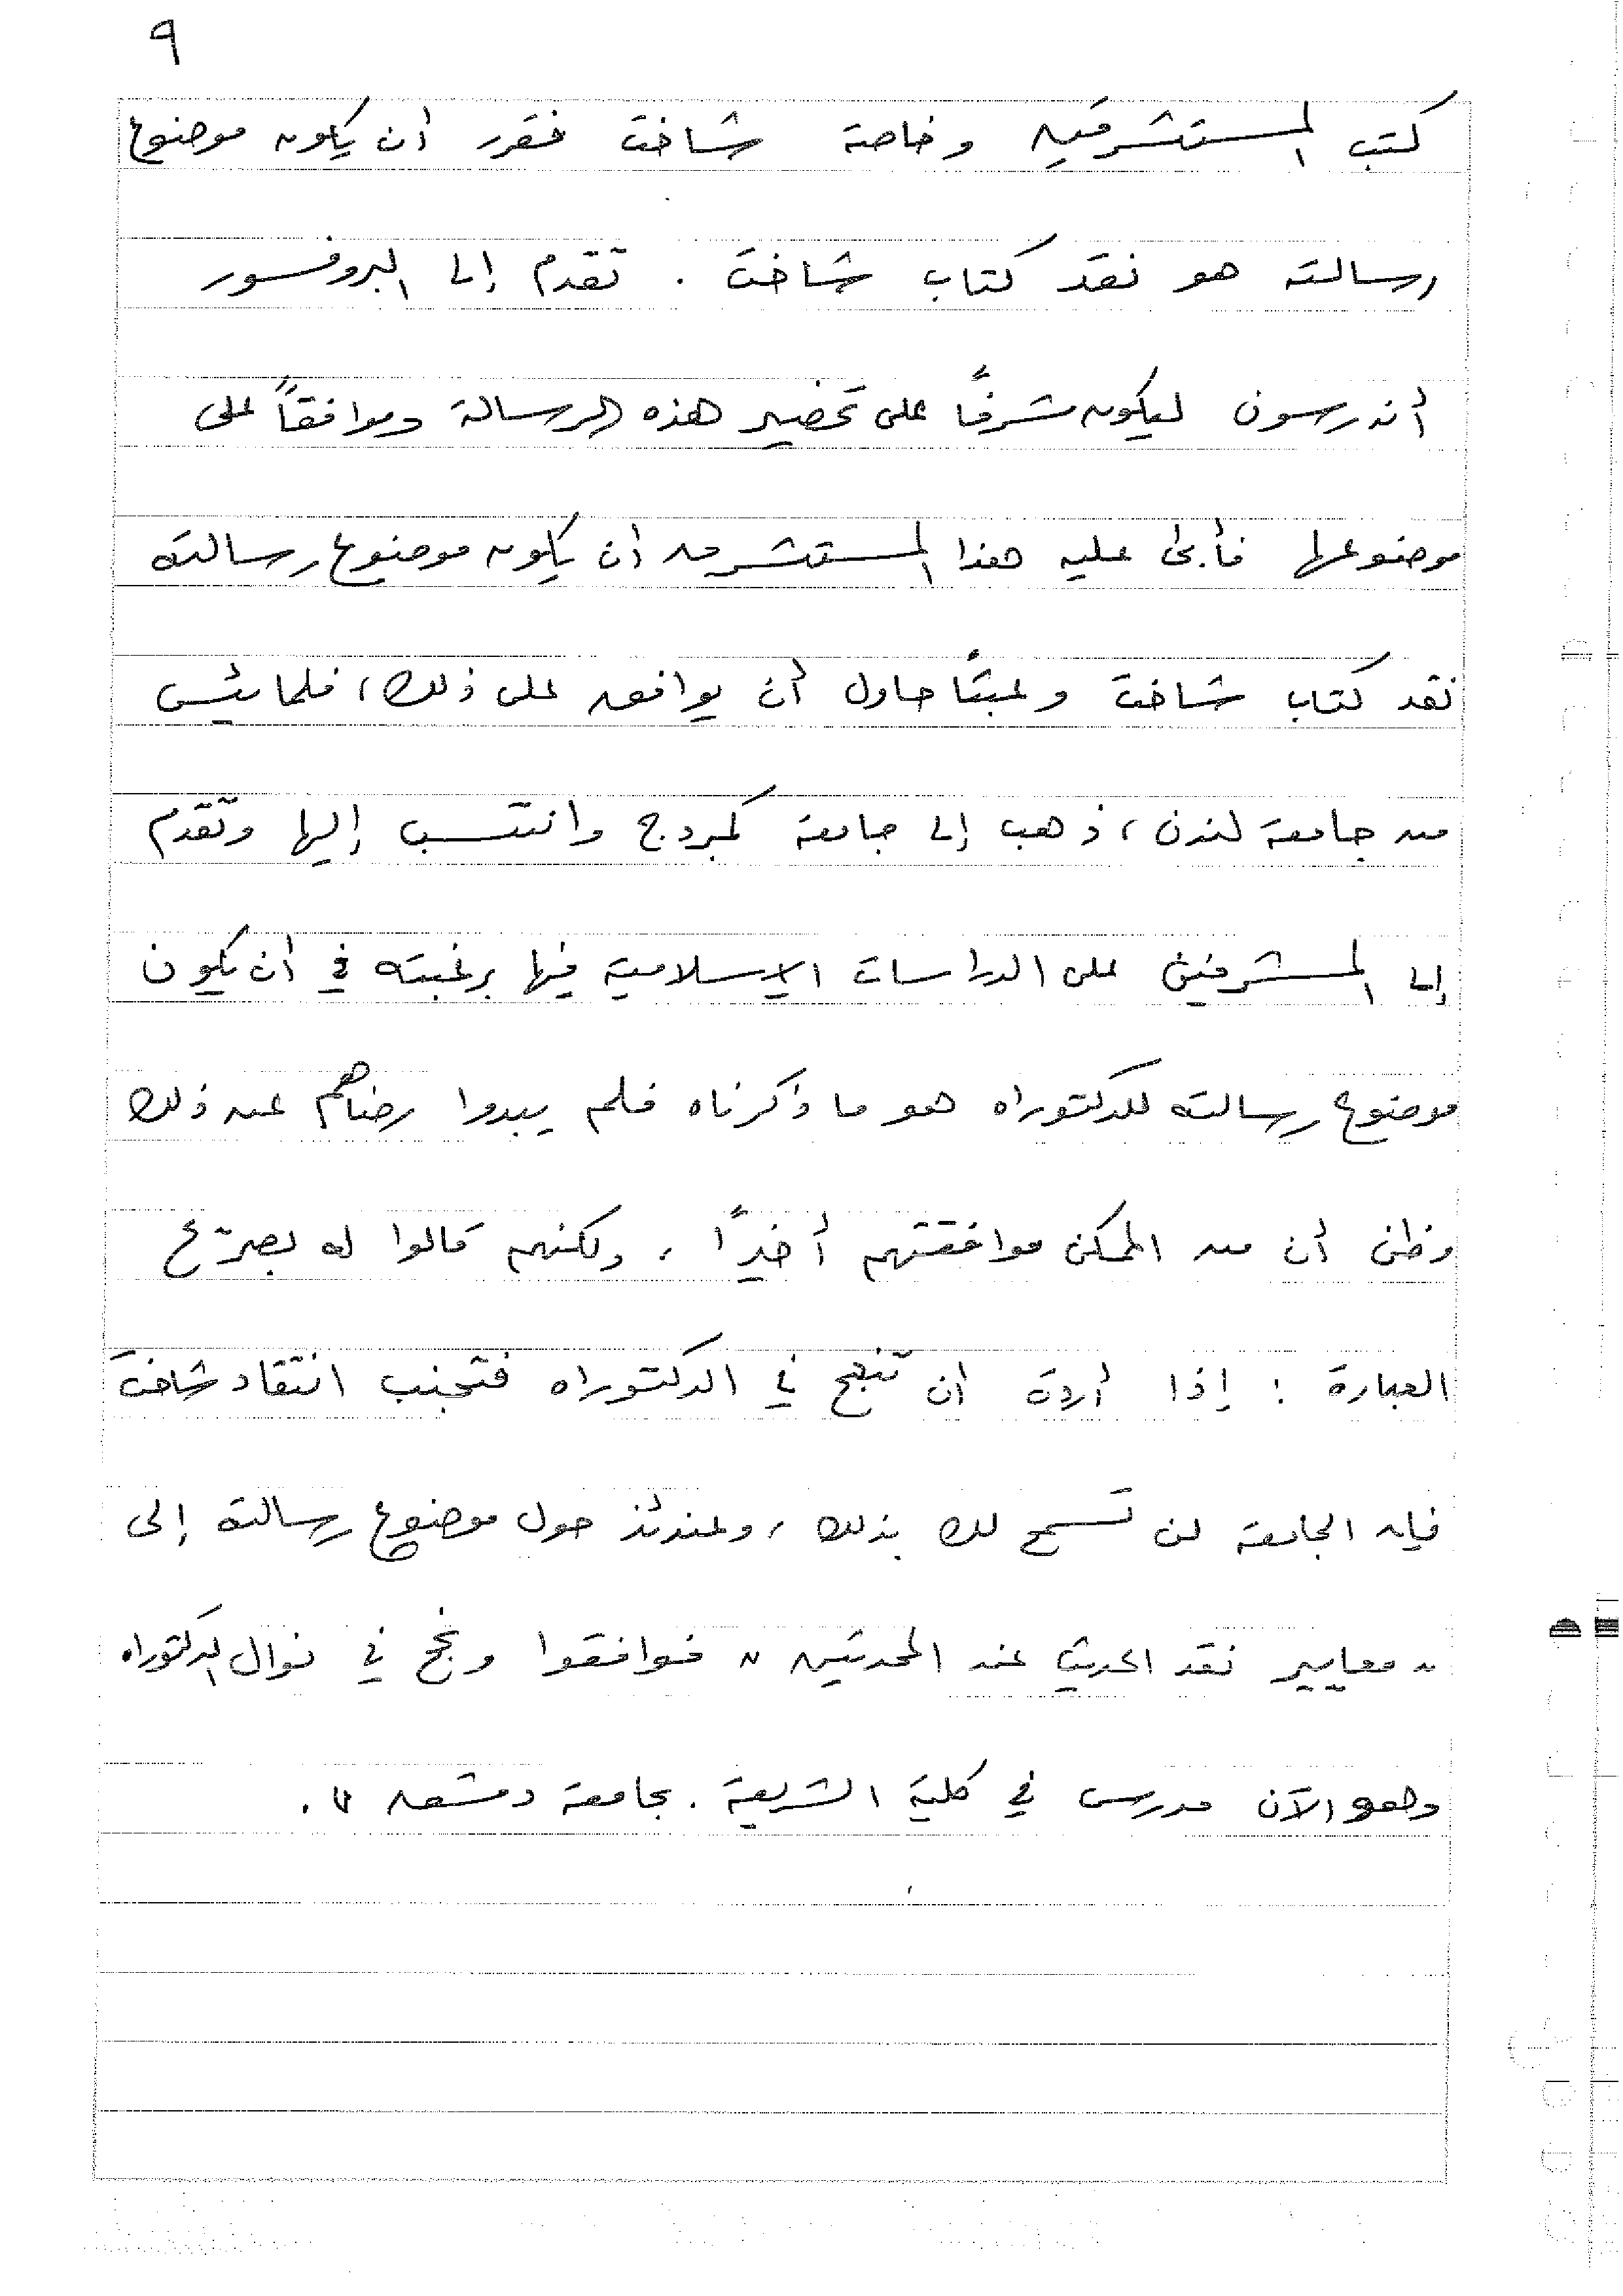 ٩
كتب المستشرقين وخاصة شاخت فقرر أن يكون موضوع
رسالته هو نقد كتاب شاخت . تقدم إلى البروفسور
أندرسون ليكون مشرفًا على تحضير هذه الرسالة وموافقاً على
موضوعها فأبى عليه هذا المستشرق أن يكون موضوع رسالته
نقد كتاب شاخت وعبثًا حاول أن يوافق على ذلك، فلما يئس
من جامعة لندن، ذهب إلى جامعة كمبردج وانتسب إليها وتقدم
إلى المشرفين على الدراسات الإسلامية فيها برغبته في أن يكون
موضوع رسالته للدكتوراه هو ما ذكرناه فلم يبدوا رضاهم عن ذلك
وظن أن من الممكن موافقتهم أخيرًا ، ولكنهم قالوا له بصريح
العبارة : إذا أردت أن تنجح في الدكتوراه فتجنب انتقاد شاخت
فإن الجامعة لن تسمح لك بذلك ، وعندئذ حول موضوع رسالته إلى
" معايير نقد الحديث عند المحدثين " فوافقوا ونجح في نوال الدكتوراه
وهو الآن مدرس في كلية الشريعة . بجامعة دمشق " .